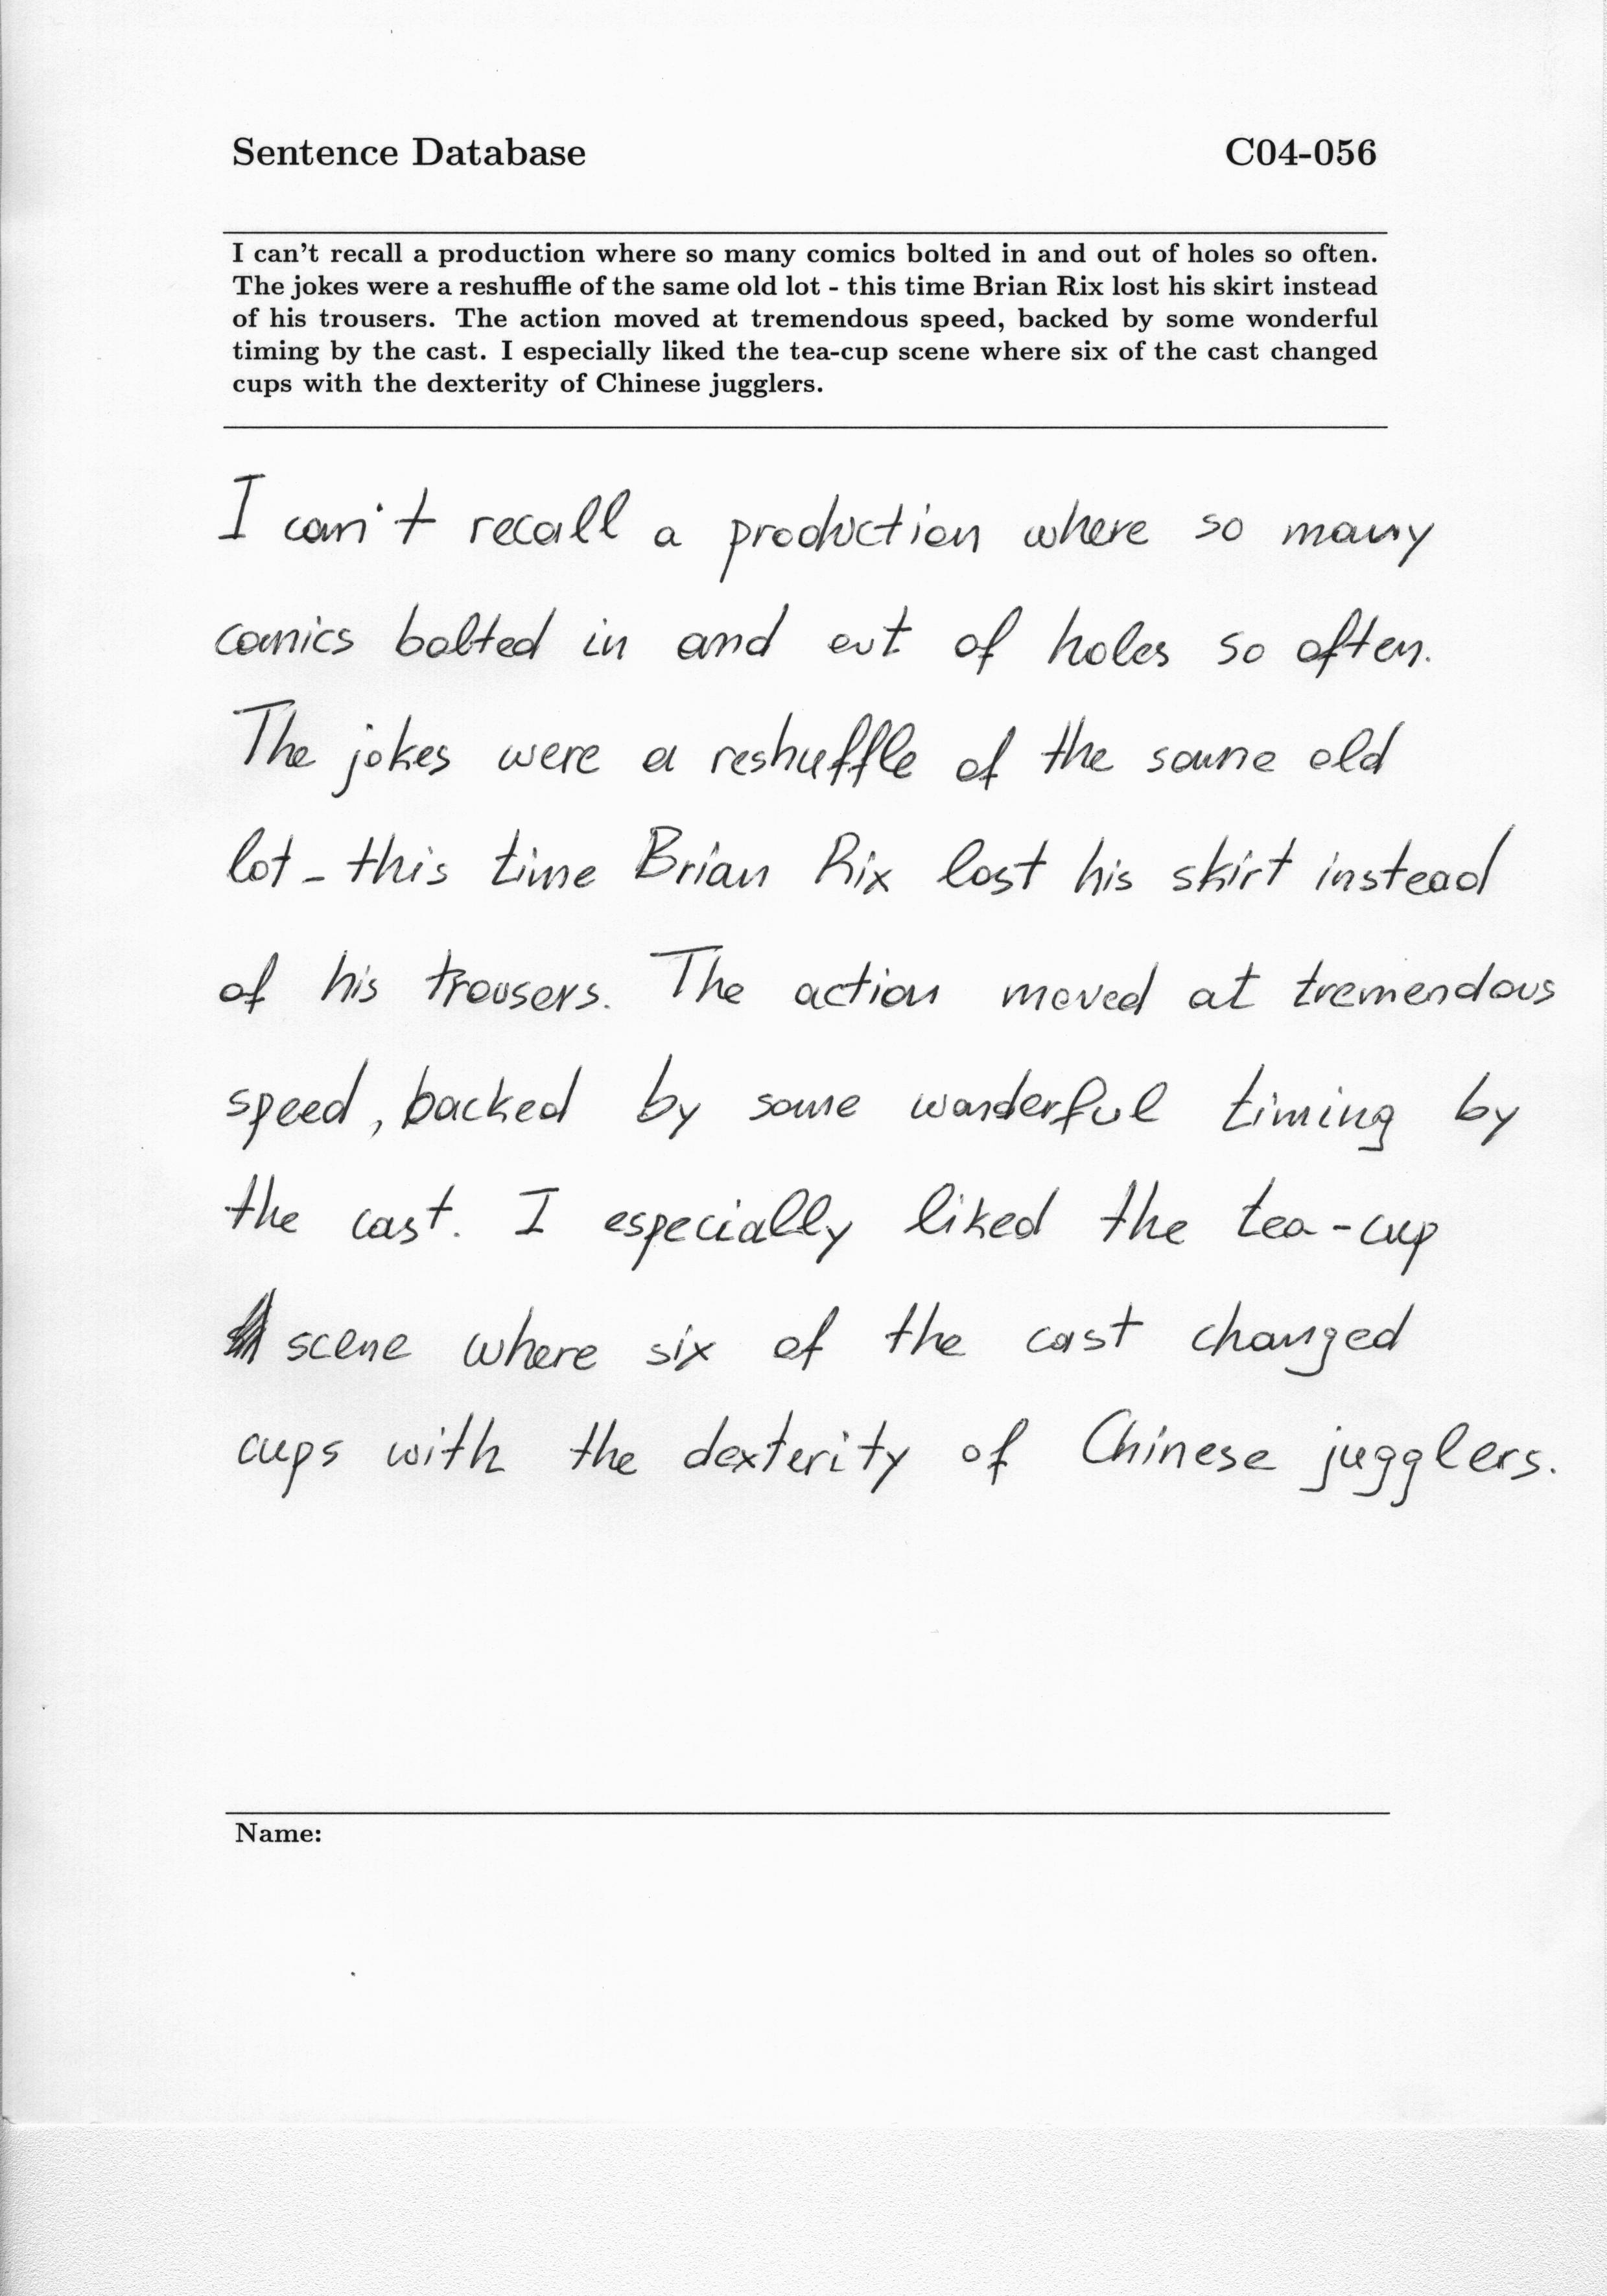 Sentence Database C04-056
I can't recall a production where so many comics bolted in and out of holes so often.
The jokes were a reshuffle of the same old lot - this time Brian Rix lost his skirt instead
of his trousers. The action moved at tremendous speed, backed by some wonderful
timing by the cast. I especially liked the tea-cup scene where six of the cast changed
cups with the dexterity of Chinese jugglers.
I can't recall a production where so many
comics bolted in and out of holes so often.
The jokes were a reshuffle of the same old
lot - this time Brian Rix lost his skirt instead
of his trousers. The action moved at tremendous
speed, backed by some wonderful timing by
the cast. I especially liked the tea-cup
scene where six of the cast changed
cups with the dexterity of Chinese jugglers.
Name: